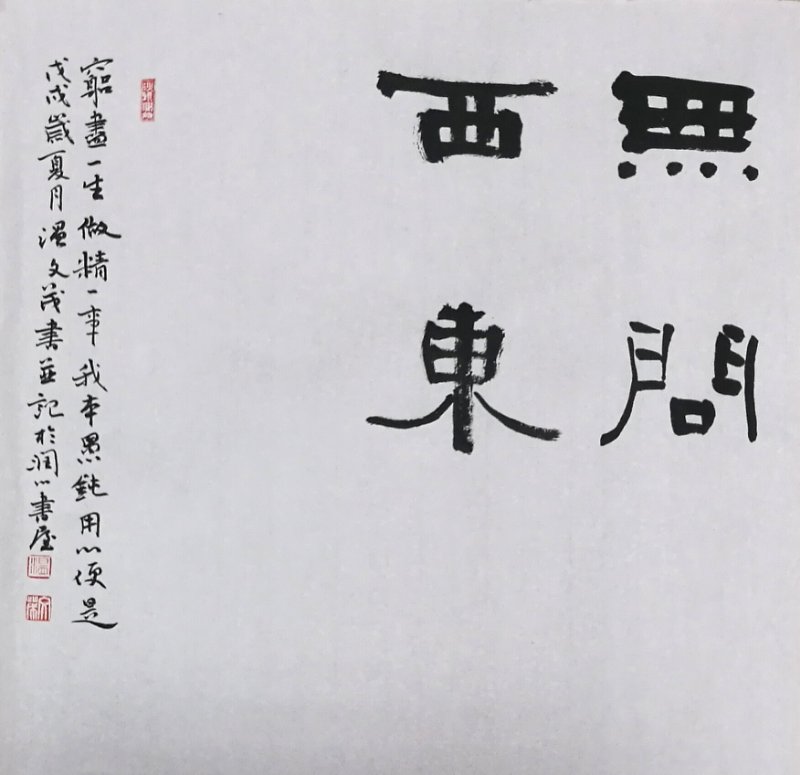 無問
西東
窮盡一生做精一事我本愚鈍用心便是
戊戌歲夏月溫文茂書並記於潤心書屋